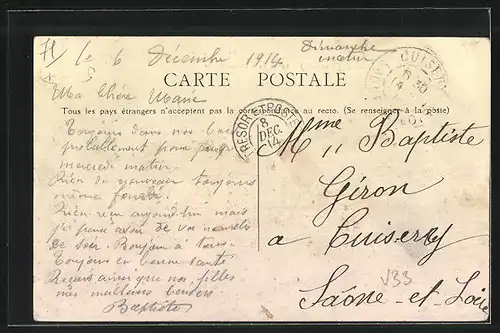 71
le 6 Décembre 1914 Dimanche
matin
CARTE POSTALE
Tous les pays étrangers n'acceptent pas la correspondance au recto. (Se renseigner à la poste)
Ma Chère Marie
Toujours dans nos
probablement pour jusqu
mercredi matin
Rien de nouveau toujours
même
Rien reçu aujourd'hui mais
je pense avoir de vos nouvelles
ce soir Bonjour à tous
Toujours en bonne santé
Reçois ainsi que nos filles
mes meilleurs baisers
Baptiste
TRESOR ET POSTES
8
DEC
14
CUISERY
Mme Baptiste
Giron
a Cuisery
Saône-et-Loire
V33